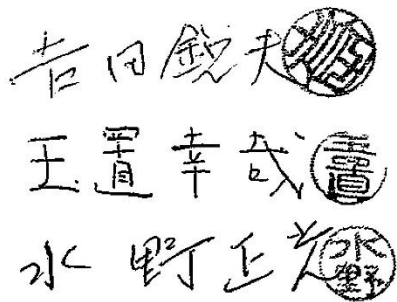 吉田鋭夫
玉置幸哉 玉置
水野正光 水野